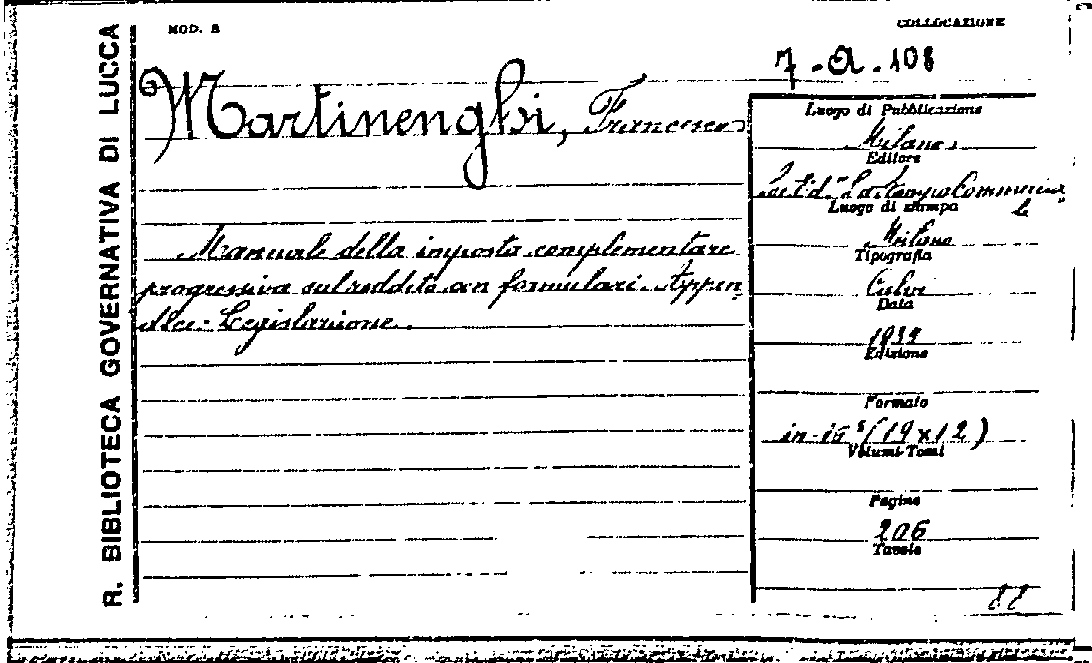 R. BIBLIOTECA GOVERNATIVA DI LUCCA
MOD. B
COLLOCAZIONE
7-A-108
Martinenghi, Francesco
Manuale della imposta complementare
progressiva sul reddito con formulari. Appen
dice-Legislazione.
Luogo di Pubblicazione
Milano
Editore
Luogo di stampa
Milano
Tipografia
Data
Edizione
Formato
in-16° (19x12)
Volumi-Tomi
Pagine
206
Tavole